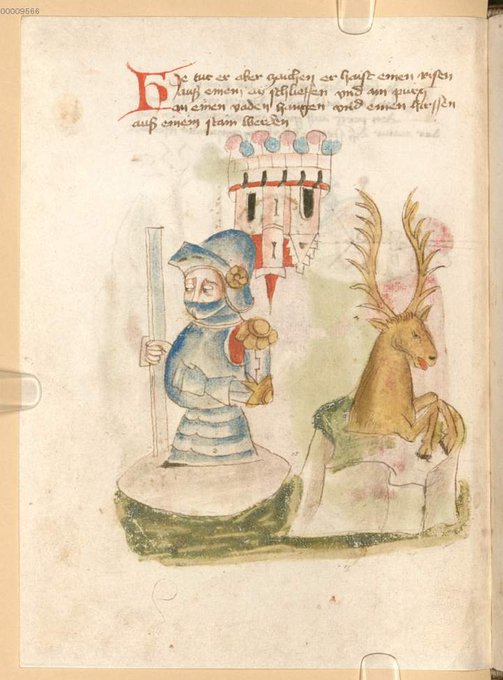 00009566
Hie tut er aber zaichen er haist einen risen
auß einem ay schlieffen vnd ain purg
an einen vaden hangen vnd einen hirssen
auß einem stain werden